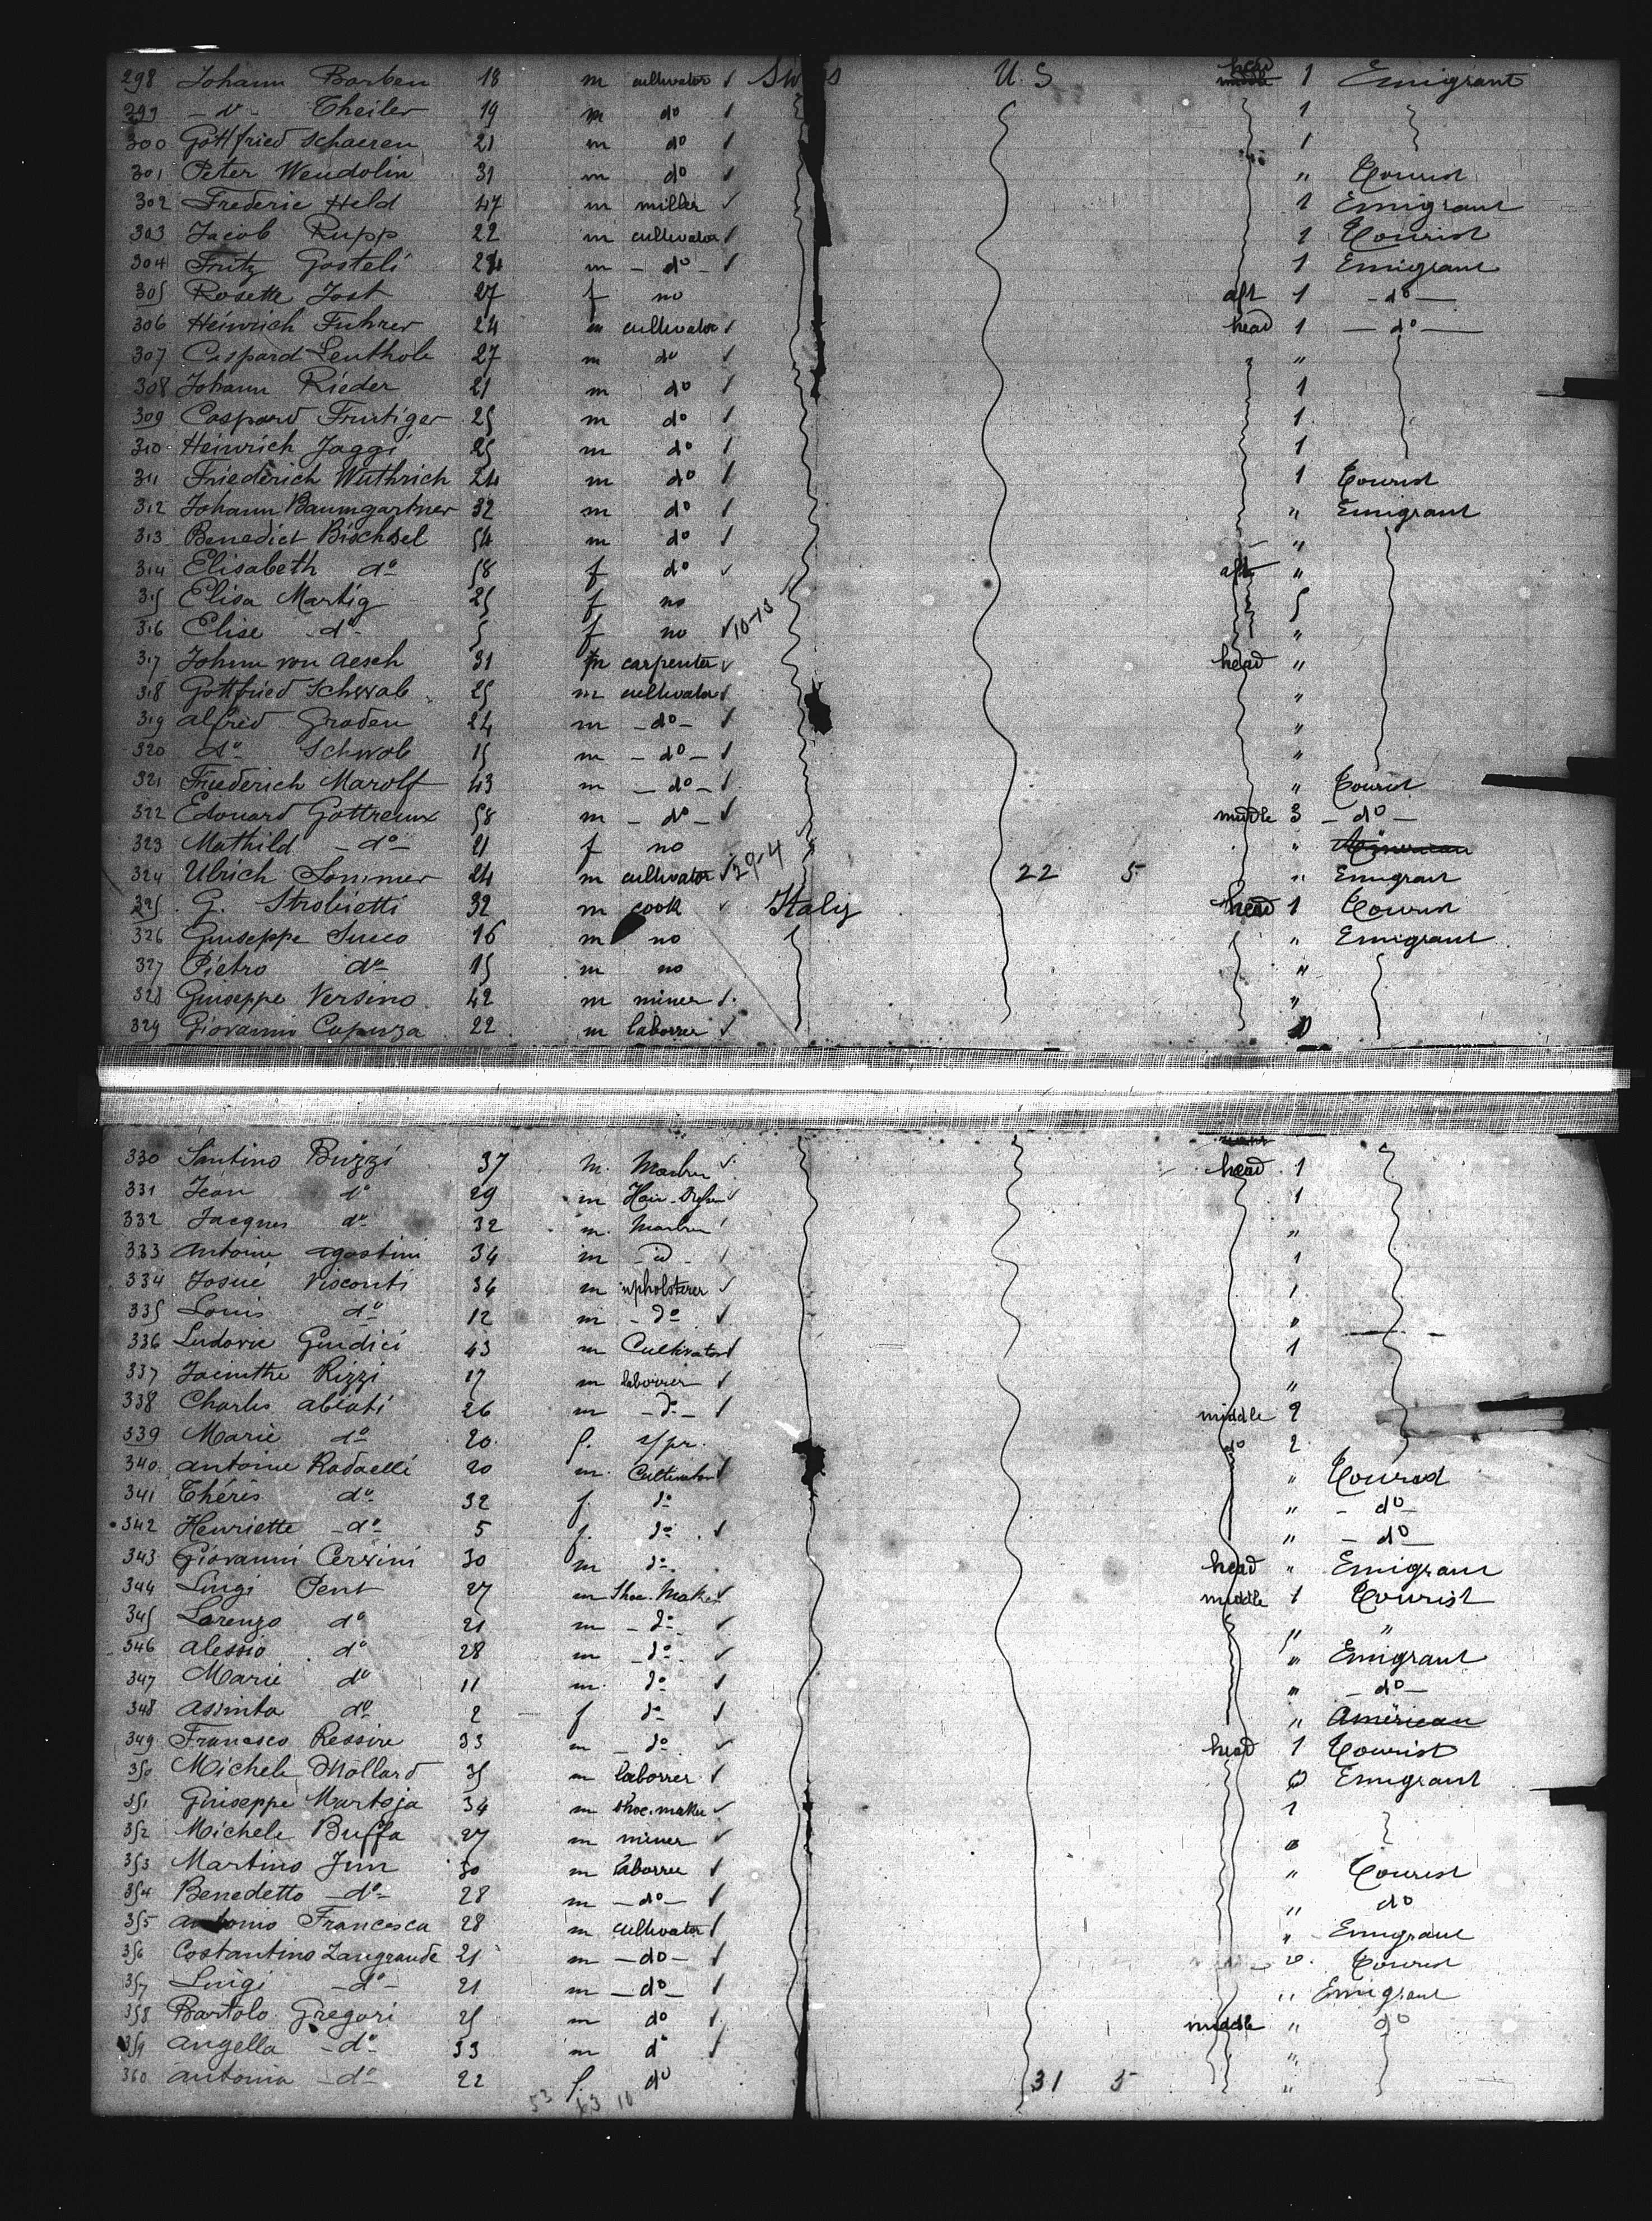 298 Johann Barben 18 m cultivator ✓ Sw s U. S head 1 Emigrant
299 - do - Theiler 19 m do ✓ 1
300 Gottfried Schaeren 21 m do ✓ 1
301 Peter Wendolin 31 m do ✓ " Tourist
302 Frederic Held 47 m miller ✓ 1 Emigrant
303 Jacob Rupp 22 m cultivator ✓ 1 Tourist
304 Fritz Gosteli 24 m - do - ✓ 1 Emigrant
305 Rosette Jost 27 f no aft 1 - do -
306 Heinrich Fuhrer 24 m cultivator ✓ head 1 - do -
307 Caspard Leuthole 27 m do ✓ "
308 Johann Rieder 21 m do ✓ 1
309 Caspard Frutiger 25 m do ✓ 1
310 Heinrich Jaggi 25 m do ✓ 1
311 Friederich Wuthrich 24 m do ✓ 1 Tourist
312 Johann Baumgartner 32 m do ✓ " Emigrant
313 Benedict Bischsel 54 m do ✓ "
314 Elisabeth do 58 f do ✓ aft "
315 Elisa Martig 25 f no
316 Elise do 5 f no ✓ 10-13 "
317 Johann von Aesch 31 m carpenter ✓ head "
318 Gottfried Schwab 25 m cultivator ✓ "
319 Alfred Graden 24 m - do - ✓ "
320 do Schwob 15 m - do - ✓ "
321 Friederich Marolf 43 m - do - ✓ " Tourist
322 Edouard Gottreux 58 m - do - ✓ middle 3 - do -
323 Mathild - do - 21 f no "
324 Ulrich Sommer 24 m cultivator ✓ 29-4 22 5 " Emigrant
325 G. Strobietti 32 m cook ✓ Italy head 1 Tourist
326 Giuseppe Suco 16 m no " Emigrant
327 Pietro do 15 m no "
328 Giuseppe Versino 42 m miner ✓ "
329 Giovanni Capuzza 22 m laborrer ✓
330 Santino Buzzi 37 m. ✓ head 1
331 Jean do 29 m ✓ 1
332 Jacques do 32 m. "
333 Antoine Agostini 34 m id 1
334 Josué Visconti 36 m upholsterer ✓ 1
335 Louis do 12 m - do ✓ "
336 Ludovic Giudici 43 m Cultivator ✓ 1
337 Jacinthe Rizzi 17 m laborrer ✓ "
338 Charles Abiati 26 m - do - ✓ middle 2
339 Marie do 20 f. s/pr. do 2
340 Antoine Radaelli 20 m. Cultivator ✓ " Tourist
341 Théres do 32 f. do " - do
342 Henriette - do - 5 f. do ✓ " - do
343 Giovanni Cerzini 30 m do head " Emigrant
344 Luigi Pent 27 m Shoe-Maker ✓ middle 1 Tourist
345 Lorenzo do 21 m - do ✓ " "
346 Alessio do 28 m - do ✓ " Emigrant
347 Marie do 11 m. do ✓ " - do -
348 Assinta do 2 f do ✓ " American
349 Francesco Ressire 33 m - do ✓ head 1 Tourist
350 Michele Mollard 35 m laborrer ✓ Emigrant
351 Giuseppe Martoja 34 m Shoe.maker ✓ 1
352 Michele Buffa 27 m miner ✓
353 Martino Jun 30 m laborrer ✓ " Tourist
354 Benedetto - do - 28 m - do - ✓ " do
355 Antonio Francesca 28 m cultivator ✓ " Emigrant
356 Costantino Zangrande 21 m - do - ✓ Tourist
357 Luigi - do - 21 m - do ✓ " Emigrant
358 Bartolo Gregori 25 m do ✓ middle " do
359 Angella - do - 33 m do ✓ "
360 Antonia - do - 22 f. do 31 5 "
53 10